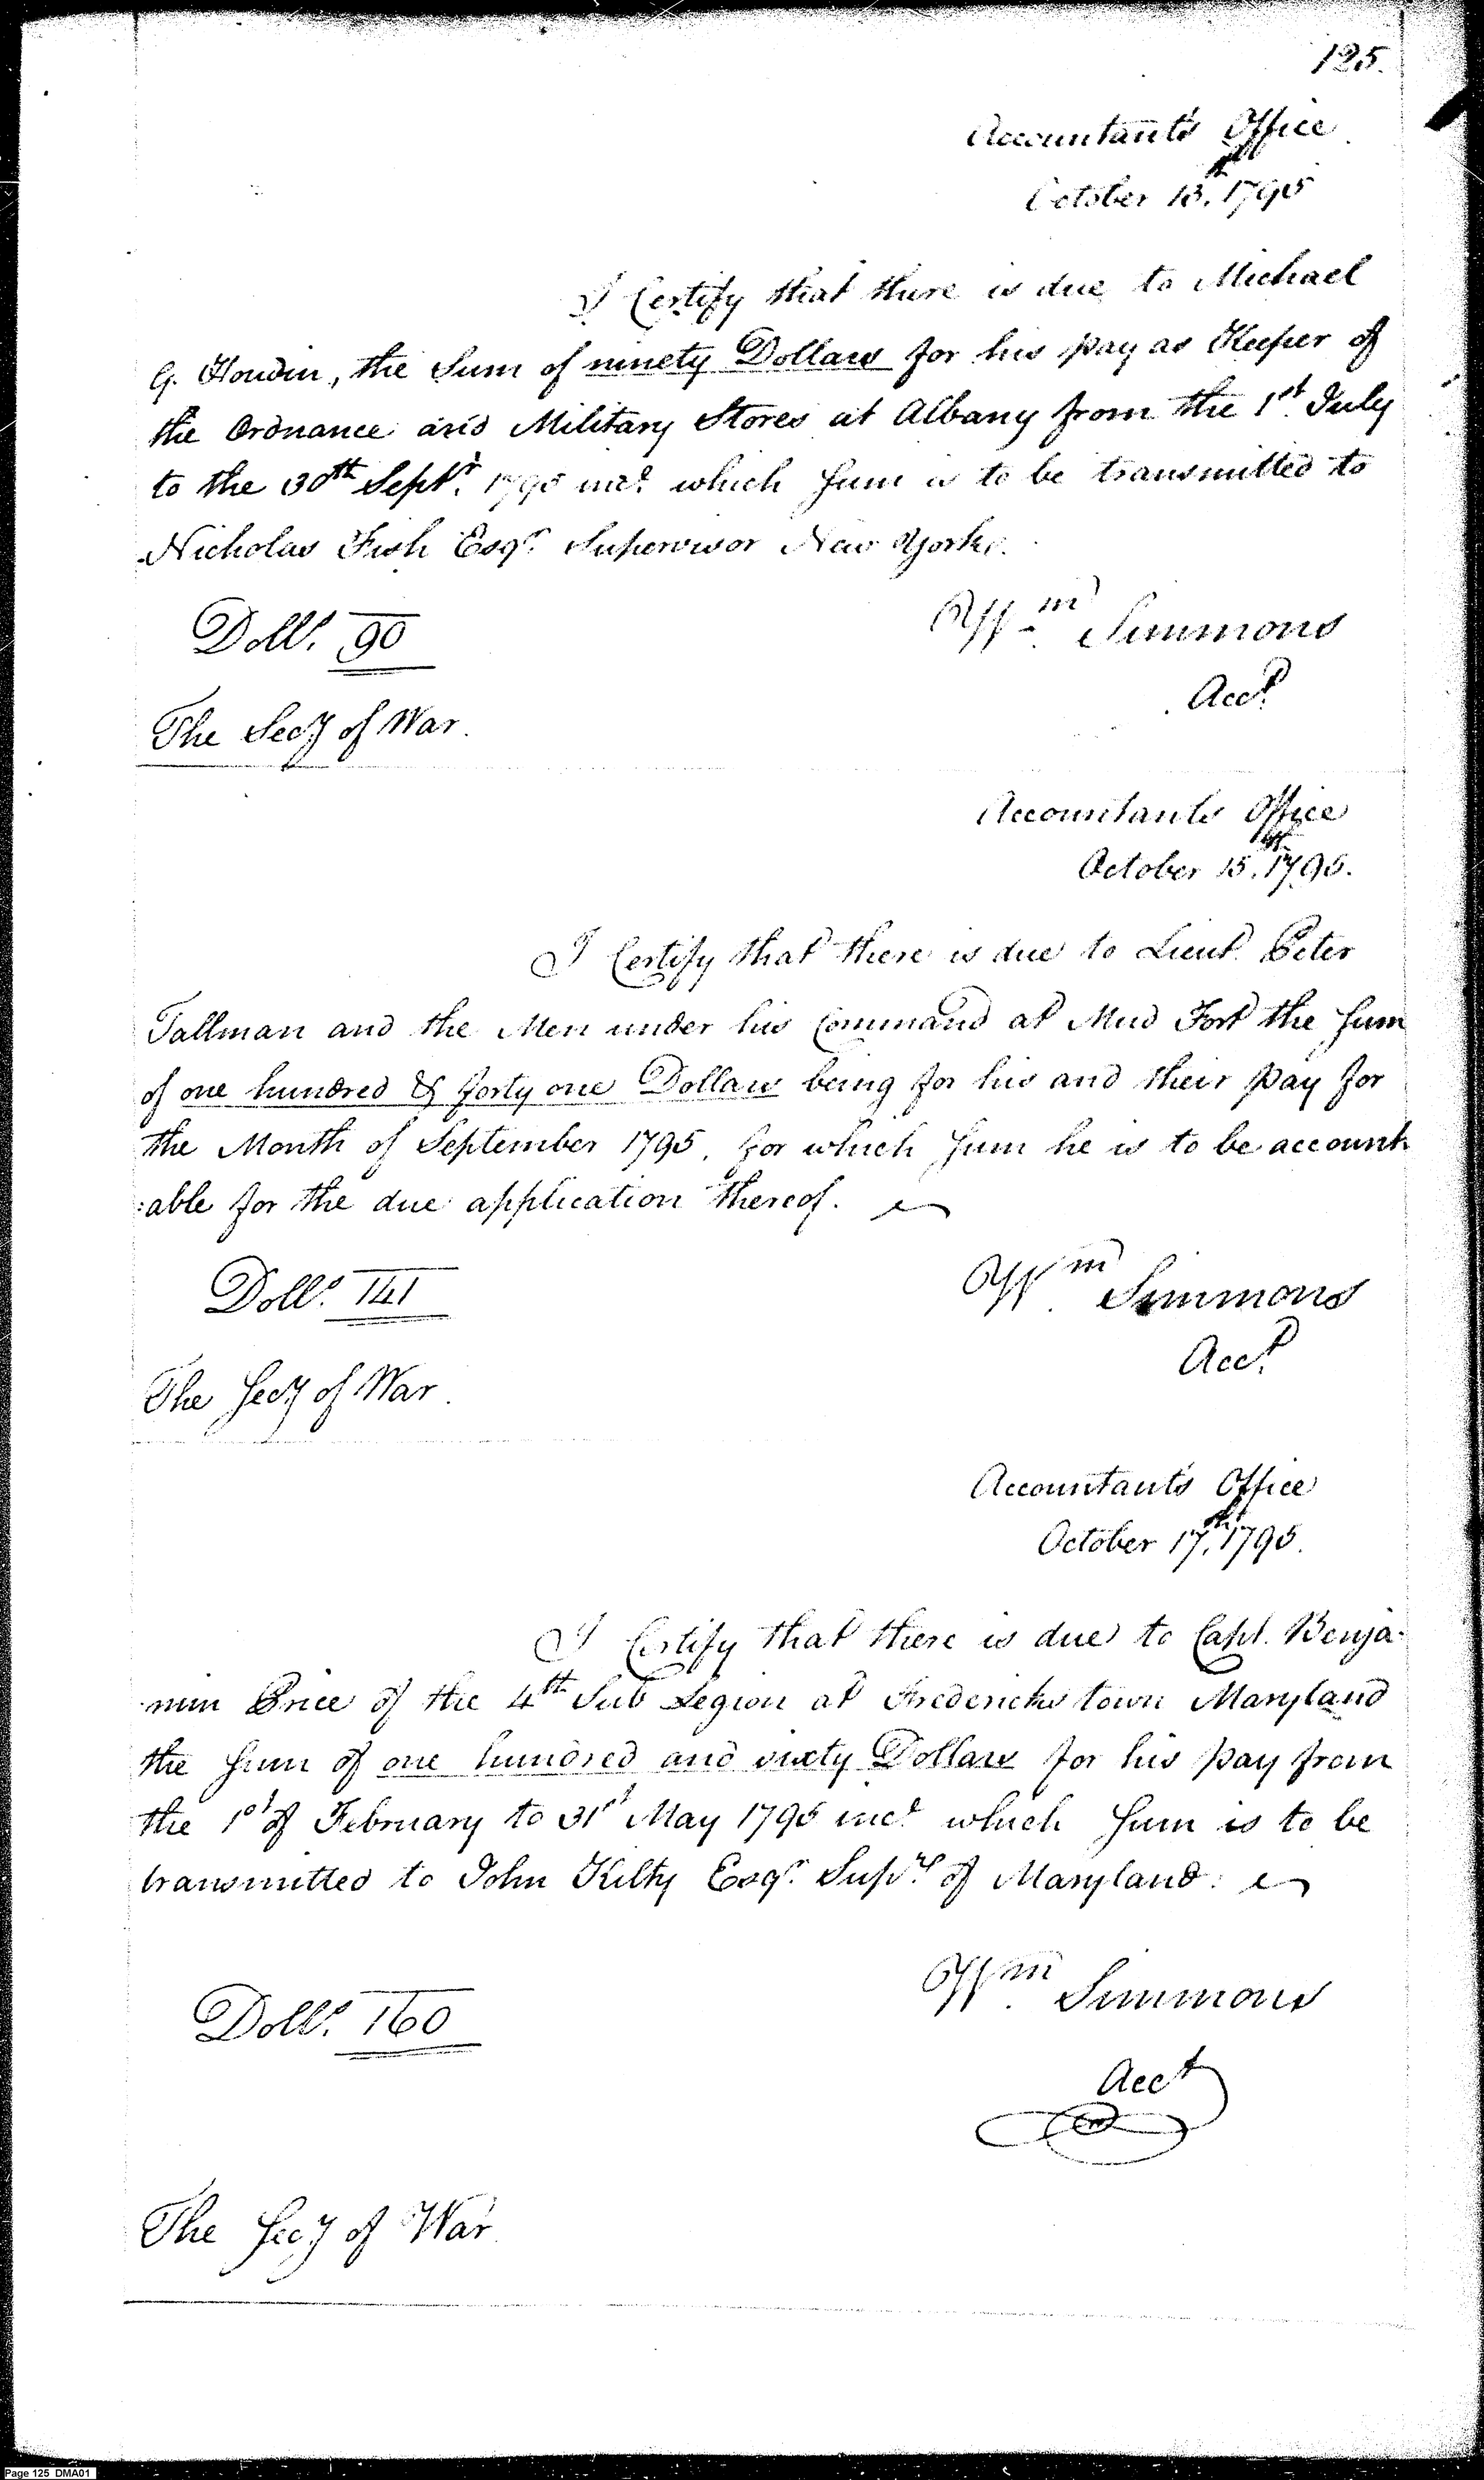 125.
Accountant's Office
October 13th, 1795
I Certify that there is due to Michael
G. Houdin, the Sum of ninety Dollars for his pay as Keeper of
the Ordnance and Military Stores at Albany from the 1st. July
to the 30th Septr. 1795 incle. which sum is to be transmitted to
Nicholas Fish Esqr. Supervisor New York.
Dolls. 90
Wm. Simmons
Acct.
The Secy of War.
Accountants Office
October 15th, 1795.
I Certify that there is due to Lieut. Peter
Tallman and the Men under his Command at Mud Fort the sum
of one hundred & forty one Dollars being for his and their pay for
the Month of September 1795, for which sum he is to be account
:able for the due application thereof.
Dolls. 141
Wm. Simmons
Acct.
The Secy of War.
Accountant's Office
October 17th, 1795.
I Certify that there is due to Capt. Benja-
-min Price of the 4th Sub Legion at Fredericks town Maryland
the sum of one hundred and sixty Dollars for his pay from
the 1st of February to 31st May 1795 incle. which sum is to be
transmitted to John Kilty Esqr. Supvr. of Maryland.
Dolls. 160
Wm. Simmons
Acct
The Secy of War.
Page 125 DMA01